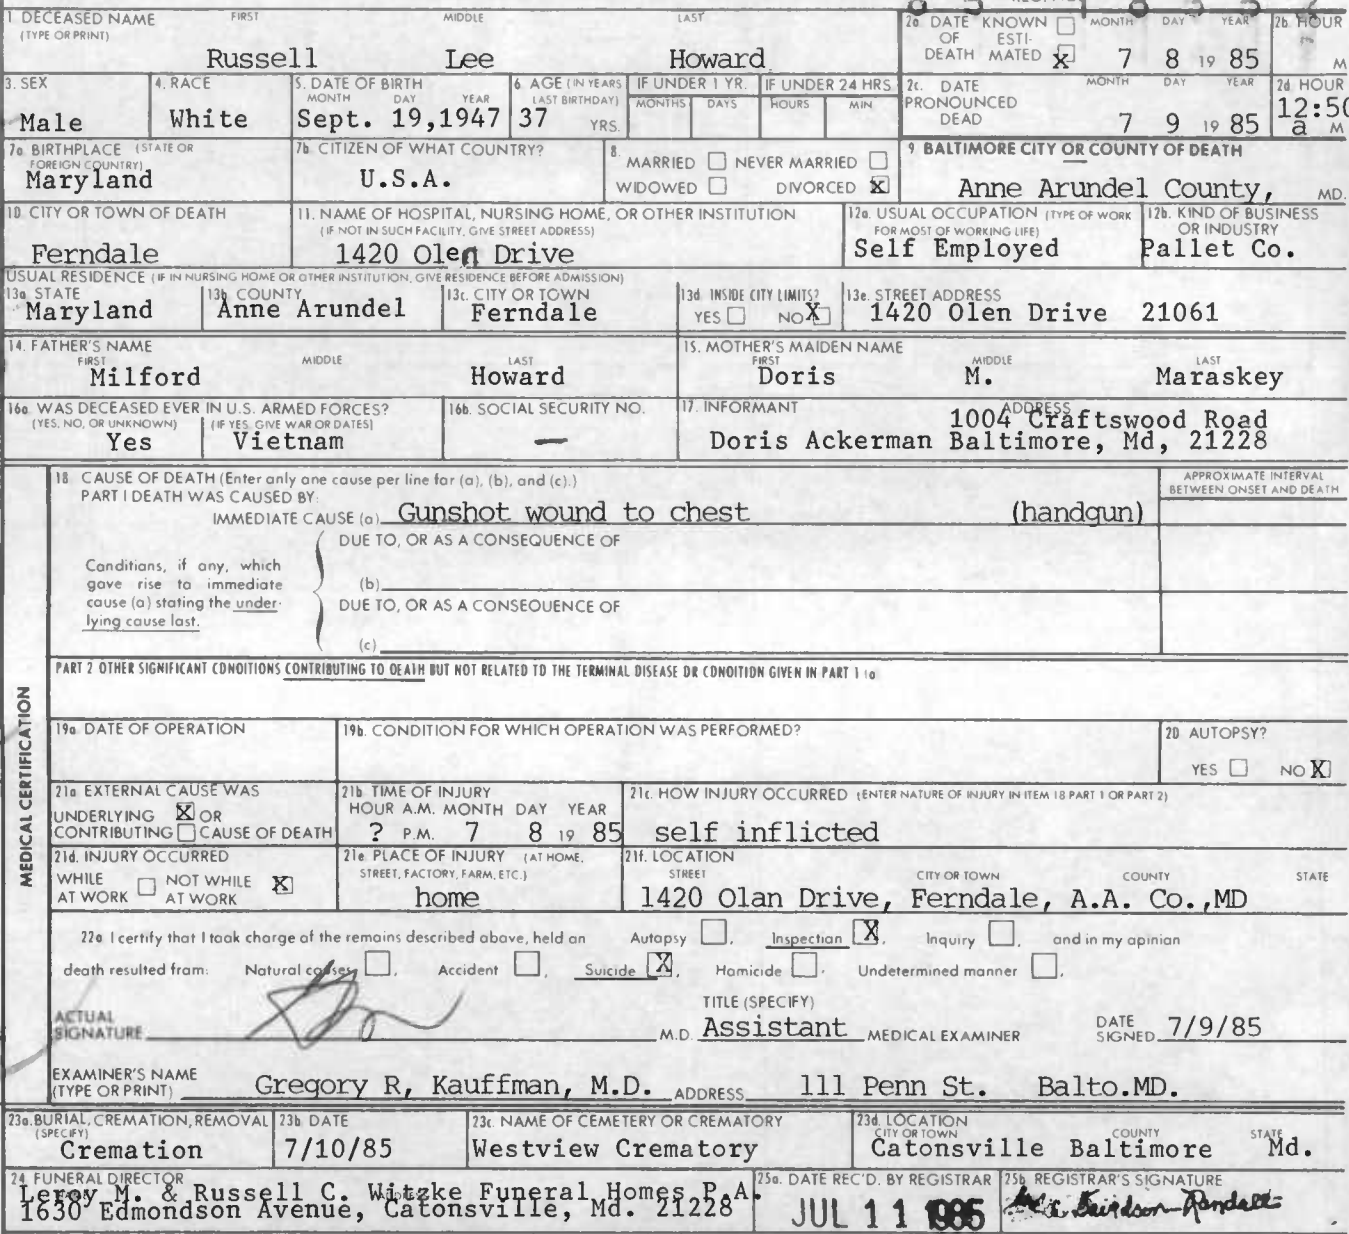 1 DECEASED NAME FIRST MIDDLE LAST
(TYPE OR PRINT)
Russell Lee Howard
2a. DATE KNOWN ☐ MONTH DAY YEAR
OF ESTI-
DEATH MATED ☒ 7 8 19 85
2b HOUR
M
3. SEX
Male
4. RACE
White
5. DATE OF BIRTH
MONTH DAY YEAR
Sept. 19,1947
6 AGE (IN YEARS
LAST BIRTHDAY)
37 YRS.
IF UNDER 1 YR.
MONTHS DAYS
IF UNDER 24 HRS
HOURS MIN
2c. DATE MONTH DAY YEAR
PRONOUNCED
DEAD 7 9 19 85
2d HOUR
12:50
a M
7a BIRTHPLACE (STATE OR
FOREIGN COUNTRY)
Maryland
7b. CITIZEN OF WHAT COUNTRY?
U.S.A.
8.
MARRIED ☐ NEVER MARRIED ☐
WIDOWED ☐ DIVORCED ☒
9. BALTIMORE CITY OR COUNTY OF DEATH
Anne Arundel County, MD.
10. CITY OR TOWN OF DEATH
Ferndale
11. NAME OF HOSPITAL, NURSING HOME, OR OTHER INSTITUTION
(IF NOT IN SUCH FACILITY, GIVE STREET ADDRESS)
1420 Olen Drive
12a. USUAL OCCUPATION (TYPE OF WORK
FOR MOST OF WORKING LIFE)
Self Employed
12b. KIND OF BUSINESS
OR INDUSTRY
Pallet Co.
USUAL RESIDENCE (IF IN NURSING HOME OR OTHER INSTITUTION, GIVE RESIDENCE BEFORE ADMISSION)
13a. STATE
Maryland
13b COUNTY
Anne Arundel
13c. CITY OR TOWN
Ferndale
13d. INSIDE CITY LIMITS?
YES ☐ NO ☒
13e. STREET ADDRESS
1420 Olen Drive 21061
14. FATHER'S NAME
FIRST MIDDLE LAST
Milford Howard
15. MOTHER'S MAIDEN NAME
FIRST MIDDLE LAST
Doris M. Maraskey
16a WAS DECEASED EVER IN U.S. ARMED FORCES?
(YES, NO, OR UNKNOWN) (IF YES, GIVE WAR OR DATES)
Yes Vietnam
16b. SOCIAL SECURITY NO.
—
17. INFORMANT ADDRESS
1004 Craftswood Road
Doris Ackerman Baltimore, Md, 21228
MEDICAL CERTIFICATION
18. CAUSE OF DEATH (Enter only one cause per line for (a), (b), and (c).)
APPROXIMATE INTERVAL
BETWEEN ONSET AND DEATH
PART I DEATH WAS CAUSED BY:
IMMEDIATE CAUSE (a) Gunshot wound to chest (handgun)
DUE TO, OR AS A CONSEQUENCE OF
Conditions, if any, which
gave rise to immediate
cause (a) stating the under-
lying cause last.
(b)
DUE TO, OR AS A CONSEQUENCE OF
(c)
PART 2 OTHER SIGNIFICANT CONDITIONS CONTRIBUTING TO DEATH BUT NOT RELATED TO THE TERMINAL DISEASE OR CONDITION GIVEN IN PART 1 (a
19a. DATE OF OPERATION
19b. CONDITION FOR WHICH OPERATION WAS PERFORMED?
20 AUTOPSY?
YES ☐ NO ☒
21a EXTERNAL CAUSE WAS
UNDERLYING ☒ OR
CONTRIBUTING ☐ CAUSE OF DEATH
21b TIME OF INJURY
HOUR A.M. MONTH DAY YEAR
? P.M. 7 8 19 85
21c. HOW INJURY OCCURRED (ENTER NATURE OF INJURY IN ITEM 18 PART 1 OR PART 2)
self inflicted
21d. INJURY OCCURRED
WHILE ☐ NOT WHILE ☒
AT WORK AT WORK
21e PLACE OF INJURY (AT HOME,
STREET, FACTORY, FARM, ETC.)
home
21f. LOCATION
STREET CITY OR TOWN COUNTY STATE
1420 Olan Drive, Ferndale, A.A. Co.,MD
22a I certify that I took charge of the remains described above, held an Autopsy ☐, Inspection ☒, Inquiry ☐, and in my opinion
death resulted from: Natural causes ☐, Accident ☐, Suicide ☒, Homicide ☐. Undetermined manner ☐.
ACTUAL
SIGNATURE M.D.
TITLE (SPECIFY)
Assistant MEDICAL EXAMINER
DATE
SIGNED 7/9/85
EXAMINER'S NAME
(TYPE OR PRINT) Gregory R, Kauffman, M.D. ADDRESS 111 Penn St. Balto.MD.
23a. BURIAL, CREMATION, REMOVAL
(SPECIFY)
Cremation
23b. DATE
7/10/85
23c. NAME OF CEMETERY OR CREMATORY
Westview Crematory
23d. LOCATION
CITY OR TOWN COUNTY STATE
Catonsville Baltimore Md.
24 FUNERAL DIRECTOR
Leroy M. & Russell C. Witzke Funeral Homes P.A.
1630 Edmondson Avenue, Catonsville, Md. 21228
25a. DATE REC'D. BY REGISTRAR
JUL 11 1985
25b REGISTRAR'S SIGNATURE
Davidson-Randall